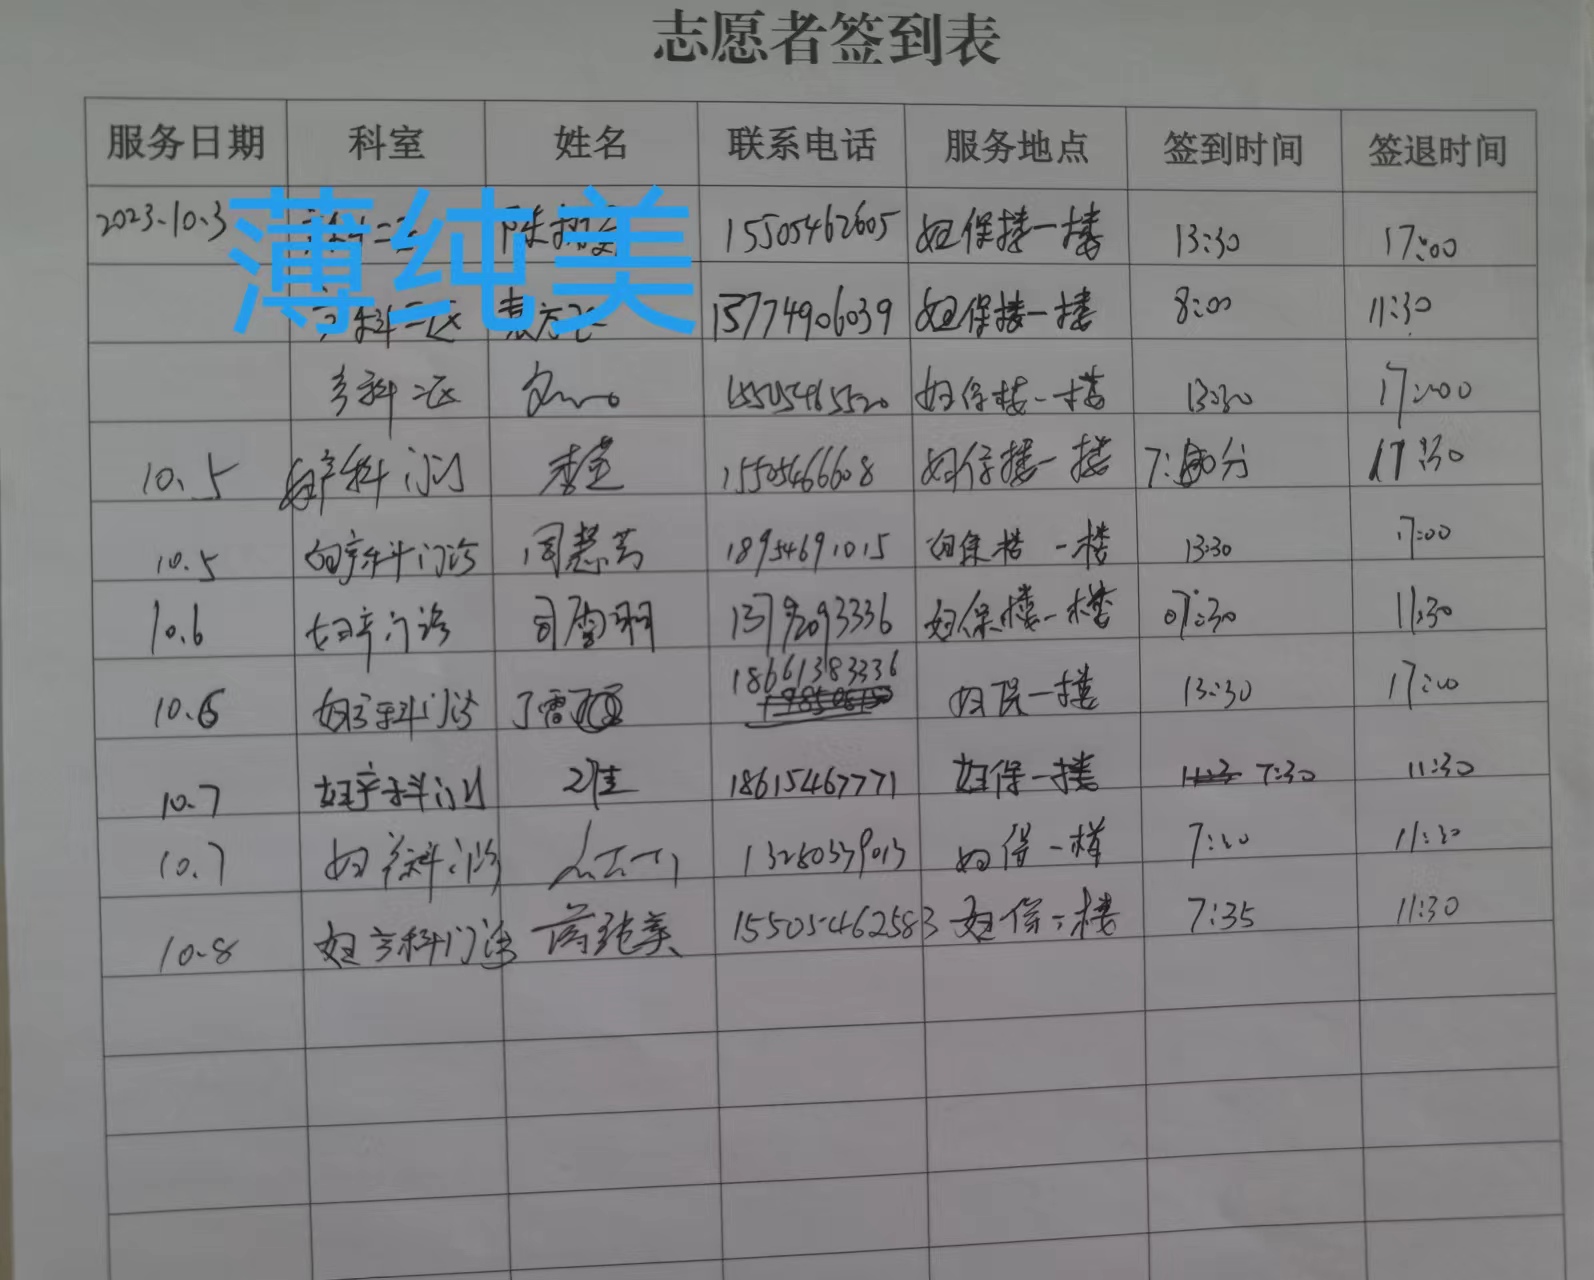 志愿者签到表
服务日期 科室 姓名 联系电话 服务地点 签到时间 签退时间
薄纯美
2023.10.3 15505462605 妇保楼一楼 13:30 17:00
产科二区 袁 15774906039 妇保楼一楼 8:00 11:30
产科二区 妇保楼一楼 13:30 17:00
10.5 妇产科门诊 15505466608 妇保楼一楼 17:30
10.5 妇产科门诊 周慧芳 18954691015 妇保楼一楼 13:30 17:00
10.6 妇产门诊 司雪羽 13792093336 妇保楼一楼 07:30 11:30
10.6 妇产科门诊 18661383336 妇保一楼 13:30 17:00
10.7 妇产科门诊 18615467771 妇保一楼 7:30 11:30
10.7 妇产科门诊 妇保一楼 7:30 11:30
10.8 妇产科门诊 薄纯美 15505462583 妇保二楼 7:35 11:30